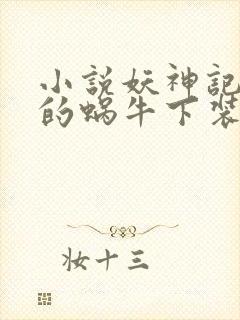 小説妖神記
的蝸牛下裝
妝十三